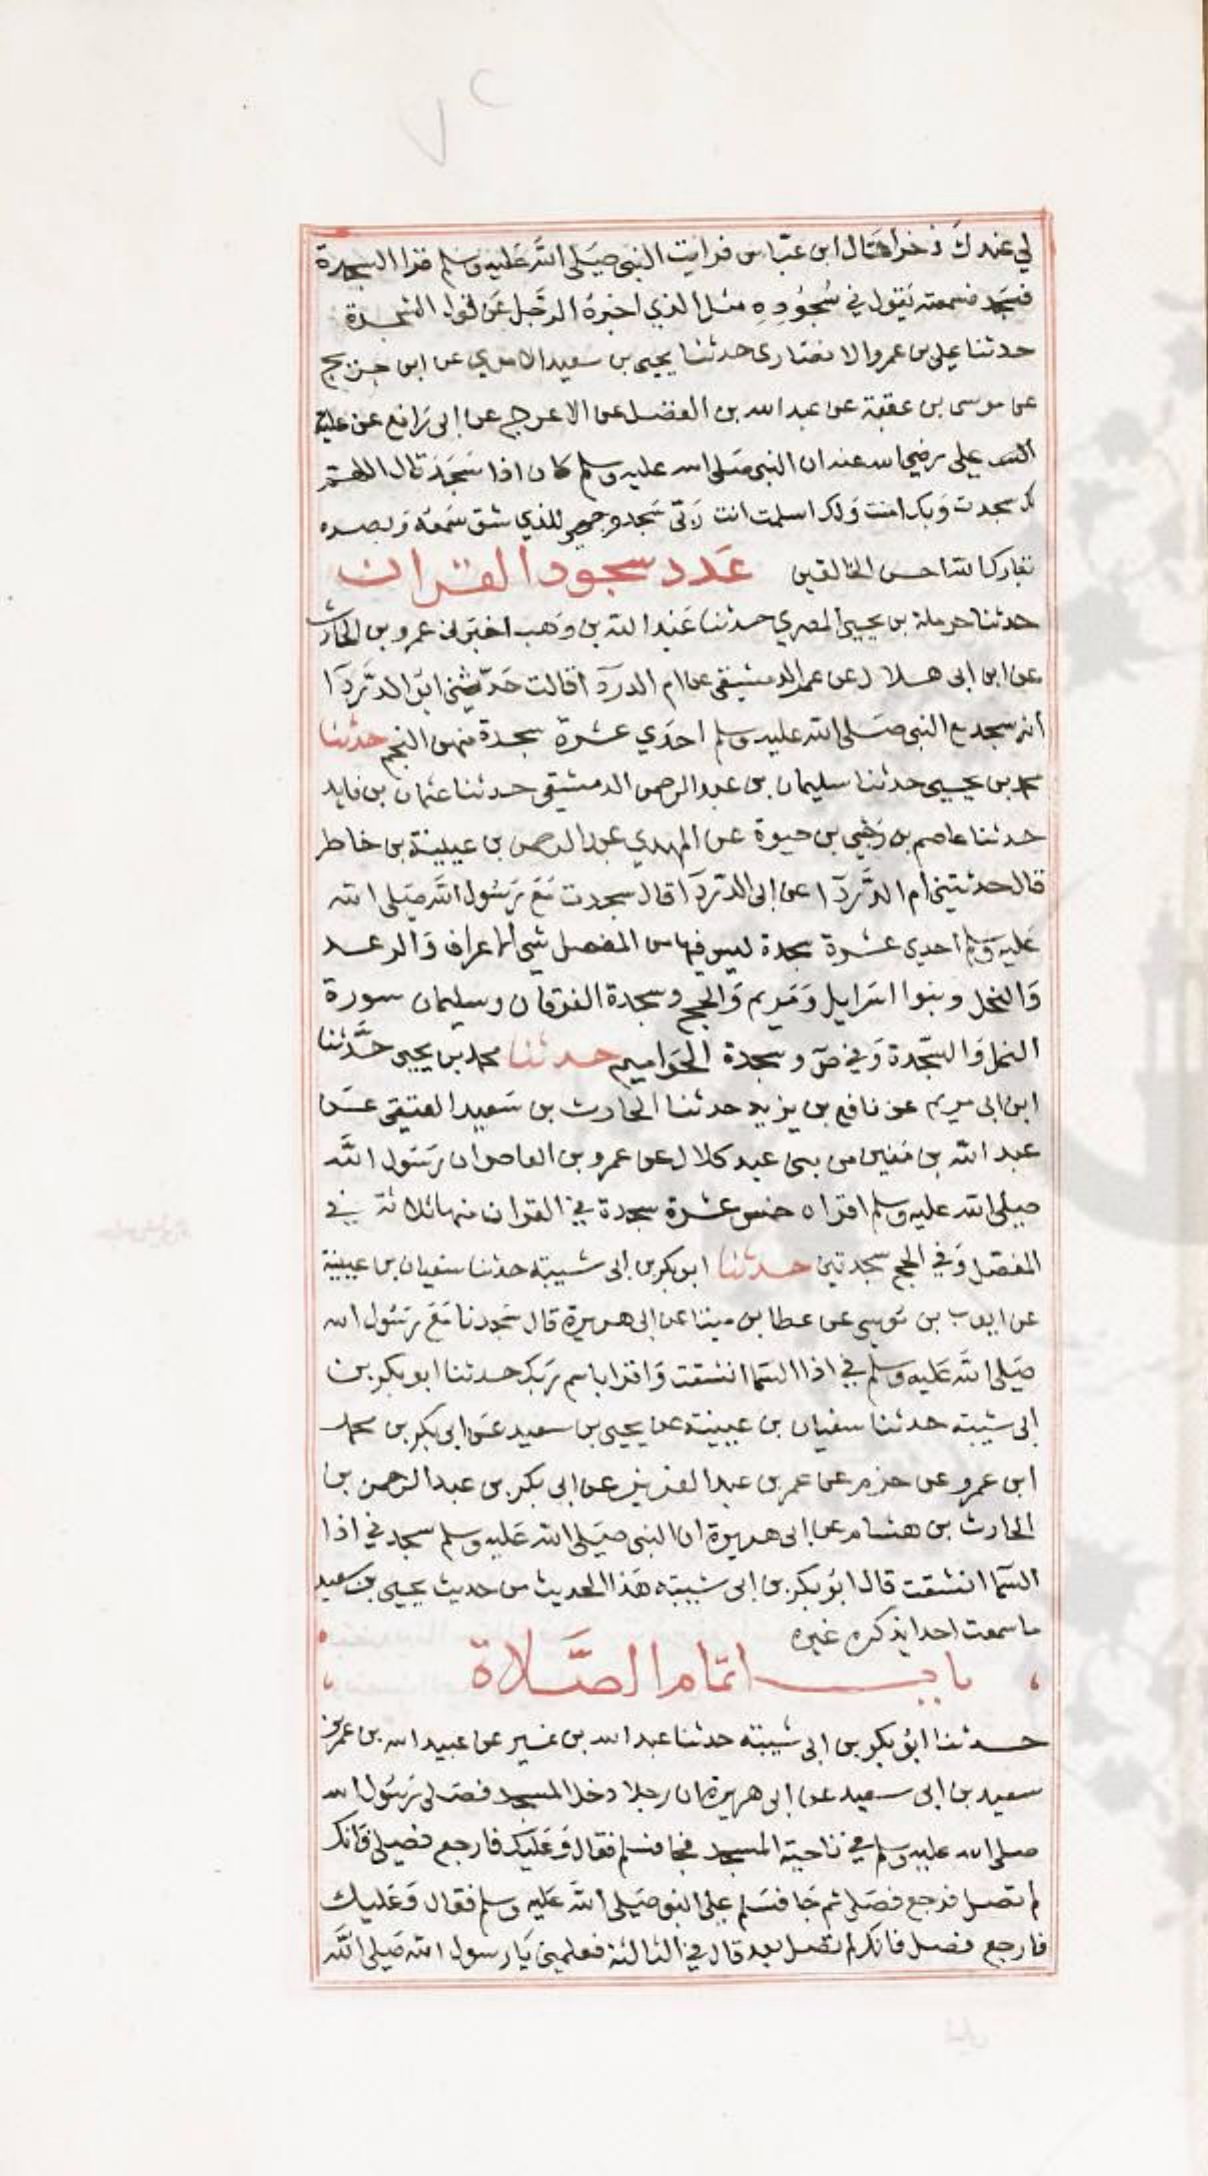 لي عندك ذخرا فقال ابن عباس فرايت النبي صلى الله عليه وسلم قرا السجدة
فسجد فسمعته يقول في سجوده مثل الذي اخبره الرجل عن قول الشجرة
حدثنا علي بن عمرو الانصاري حدثنا يحيى بن سعيد الاموي عن ابن جريج
عن موسى بن عقبة عن عبد الله بن الفضل عن الاعرج عن ابى رافع عن
علي رضي الله عنه ان النبي صلى الله عليه وسلم كان اذا سجد قال اللهم
لك سجدت وبك امنت ولك اسلمت انت ربي سجد وجهي للذي شق سمعه وبصره
تبارك الله احسن الخالقين عدد سجود القران
حدثنا حرملة بن يحيى المصري حدثنا عبد الله بن وهب اخبرني عمرو بن الحارث
عن ابن ابى هلال عن عمر الدمشقي عن ام الدردآ قالت حدثني ابو الدردآ
انه سجد مع النبي صلى الله عليه وسلم احدي عشرة سجدة منهن النجم حدثنا
محمد بن يحيى حدثنا سليمان بن عبد الرحمن الدمشقي حدثنا عثمان بن فايد
حدثنا عاصم بن رجي بن حيوة عن المهدي عبد الرحمن بن عيينة بن خاطر
قال حدثتيني ام الدردآ عن ابى الدردآ قال سجدت مع رسول الله صلى الله
عليه وسلم احدي عشرة سجدة ليس فيها من المفصل شي الاعراف والرعد
والنحل وبنوا اسرايل ومريم والحج وسجدة الفرقان وسليمان سورة
النمل والسجدة وفي ص وسجدة الحواميم حدثنا محمد بن يحيى حدثنا
ابن ابى مريم عن نافع بن يزيد حدثنا الحارث بن سعيد العتيقي عن
عبد الله بن منين من بني عبد كلال عن عمرو بن العاص ان رسول الله
صلى الله عليه وسلم اقراه خمس عشرة سجدة في القران منها ثلاثة في
المفصل وفي الحج سجدتين حدثنا ابو بكر بن ابى شيبة حدثنا سفيان بن عيينة
عن ايوب بن موسي عن عطا بن مينا عن ابى هريرة قال سجدنا مع رسول الله
صلى الله عليه وسلم في اذا السما انشقت واقرا باسم ربك حدثنا ابو بكر بن
ابى شيبة حدثنا سفيان بن عيينة عن يحيى بن سعيد عن ابى بكر بن محمد
ابن عمرو عن حزم عن عمر بن عبد العزيز عن ابى بكر بن عبد الرحمن بن
الحارث بن هشام عن ابى هريرة ان النبي صلى الله عليه وسلم سجد في اذا
السما انشقت قال ابو بكر بن ابى شيبة هذا الحديث من حديث يحيى بن سعيد
ما سمعت احدا يذكره غيره
باب اتمام الصلاة
حدثنا ابو بكر بن ابى شيبة حدثنا عبد الله بن نمير عن عبيد الله بن عمر عن
سعيد بن ابى سعيد عن ابى هريرة ان رجلا دخل المسجد فصلى ورسول الله
صلى الله عليه وسلم في ناحية المسجد فجا فسلم فقال وعليك فارجع فصلي فانك
لم تصل فرجع فصلى ثم جا فسلم علي النبي صلى الله عليه وسلم فقال وعليك
فارجع فصل فانك لم تصل بعد قال في الثالثة فعلمني يا رسول الله صلى الله